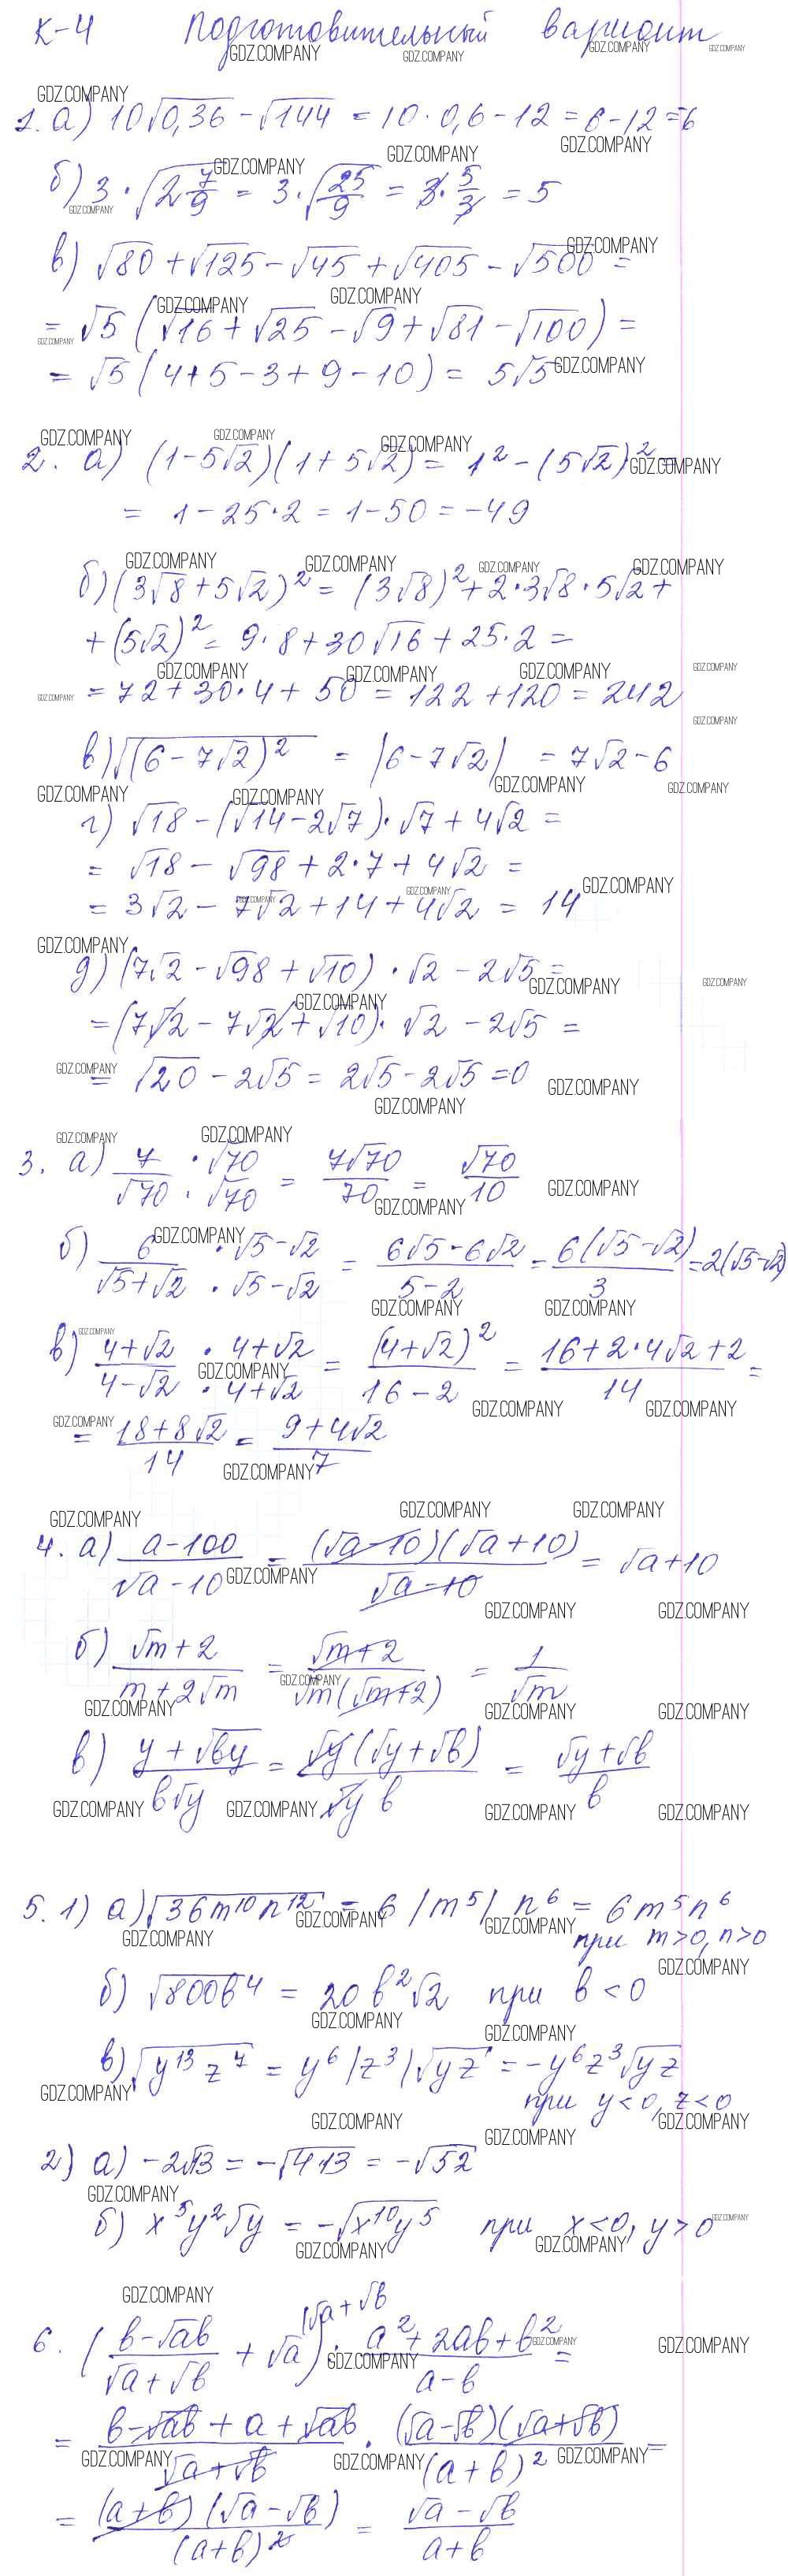 К-4 Подготовительный вариант
1. а) 10√0,36 - √144 = 10·0,6 - 12 = 6 - 12 = -6
б) 3·√(2 7/9) = 3·√(25/9) = 3·5/3 = 5
в) √80 + √125 - √45 + √405 - √500 =
= √5 (√16 + √25 - √9 + √81 - √100) =
= √5 (4+5-3+9-10) = 5√5
2. а) (1-5√2)(1+5√2) = 1² - (5√2)² =
= 1 - 25·2 = 1-50 = -49
б) (3√8+5√2)² = (3√8)² + 2·3√8·5√2 +
+ (5√2)² = 9·8 + 30√16 + 25·2 =
= 72 + 30·4 + 50 = 122 + 120 = 242
в) √((6-7√2)²) = |6-7√2| = 7√2-6
г) √18 - (√14-2√7)·√7 + 4√2 =
= √18 - √98 + 2·7 + 4√2 =
= 3√2 - 7√2 + 14 + 4√2 = 14
д) (7√2 - √98 + √10)·√2 - 2√5 =
= (7√2 - 7√2 + √10)·√2 - 2√5 =
= √20 - 2√5 = 2√5 - 2√5 = 0
3. а) 7·√70/(√70·√70) = 7√70/70 = √70/10
б) 6·√5-√2/(√5+√2·√5-√2) = (6√5-6√2)/(5-2) = 6(√5-√2)/3 = 2(√5-√2)
в) (4+√2·4+√2)/(4-√2·4+√2) = (4+√2)²/(16-2) = (16+2·4√2+2)/14 =
= (18+8√2)/14 = (9+4√2)/7
4. а) (a-100)/(√a-10) = (√a-10)(√a+10)/(√a-10) = √a+10
б) (√m+2)/(m+2√m) = (√m+2)/(√m(√m+2)) = 1/√m
в) (y+√by)/(b√y) = √y(√y+√b)/(√y b) = (√y+√b)/b
5. 1) а) √(36m¹⁰n¹²) = 6|m⁵|n⁶ = 6m⁵n⁶
при m>0, n>0
б) √(800b⁴) = 20b²√2 при b<0
в) √(y¹³z⁷) = y⁶|z³|√yz = -y⁶z³√yz
при y<0, z<0
2) а) -2√13 = -√(4·13) = -√52
б) x⁵y²√y = -√(x¹⁰y⁵) при x<0, y>0
6. ((b-√ab)/(√a+√b) + √a (√a+√b) ) : (a²+2ab+b²)/(a-b) =
= (b-√ab+a+√ab)/(√a+√b) · (√a-√b)(√a+√b)/(a+b)² =
= (a+b)(√a-√b)/(a+b)² = (√a-√b)/(a+b)
GDZ.COMPANY